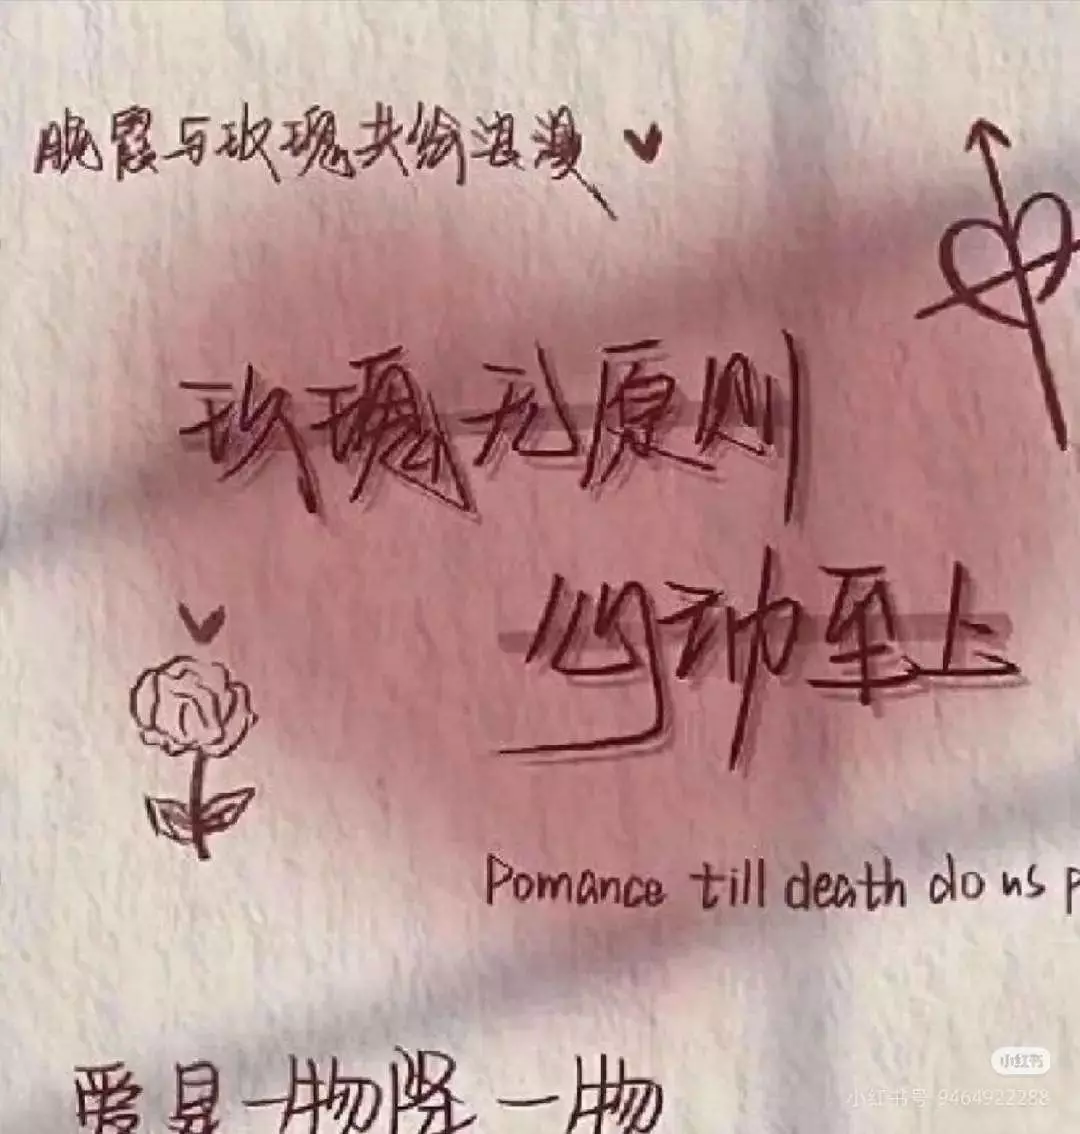 晚霞与玫瑰共绘浪漫
玫瑰无原则
心动至上
Pomance till death do us p
爱是一物降一物
小红书
小红书号 9464922288